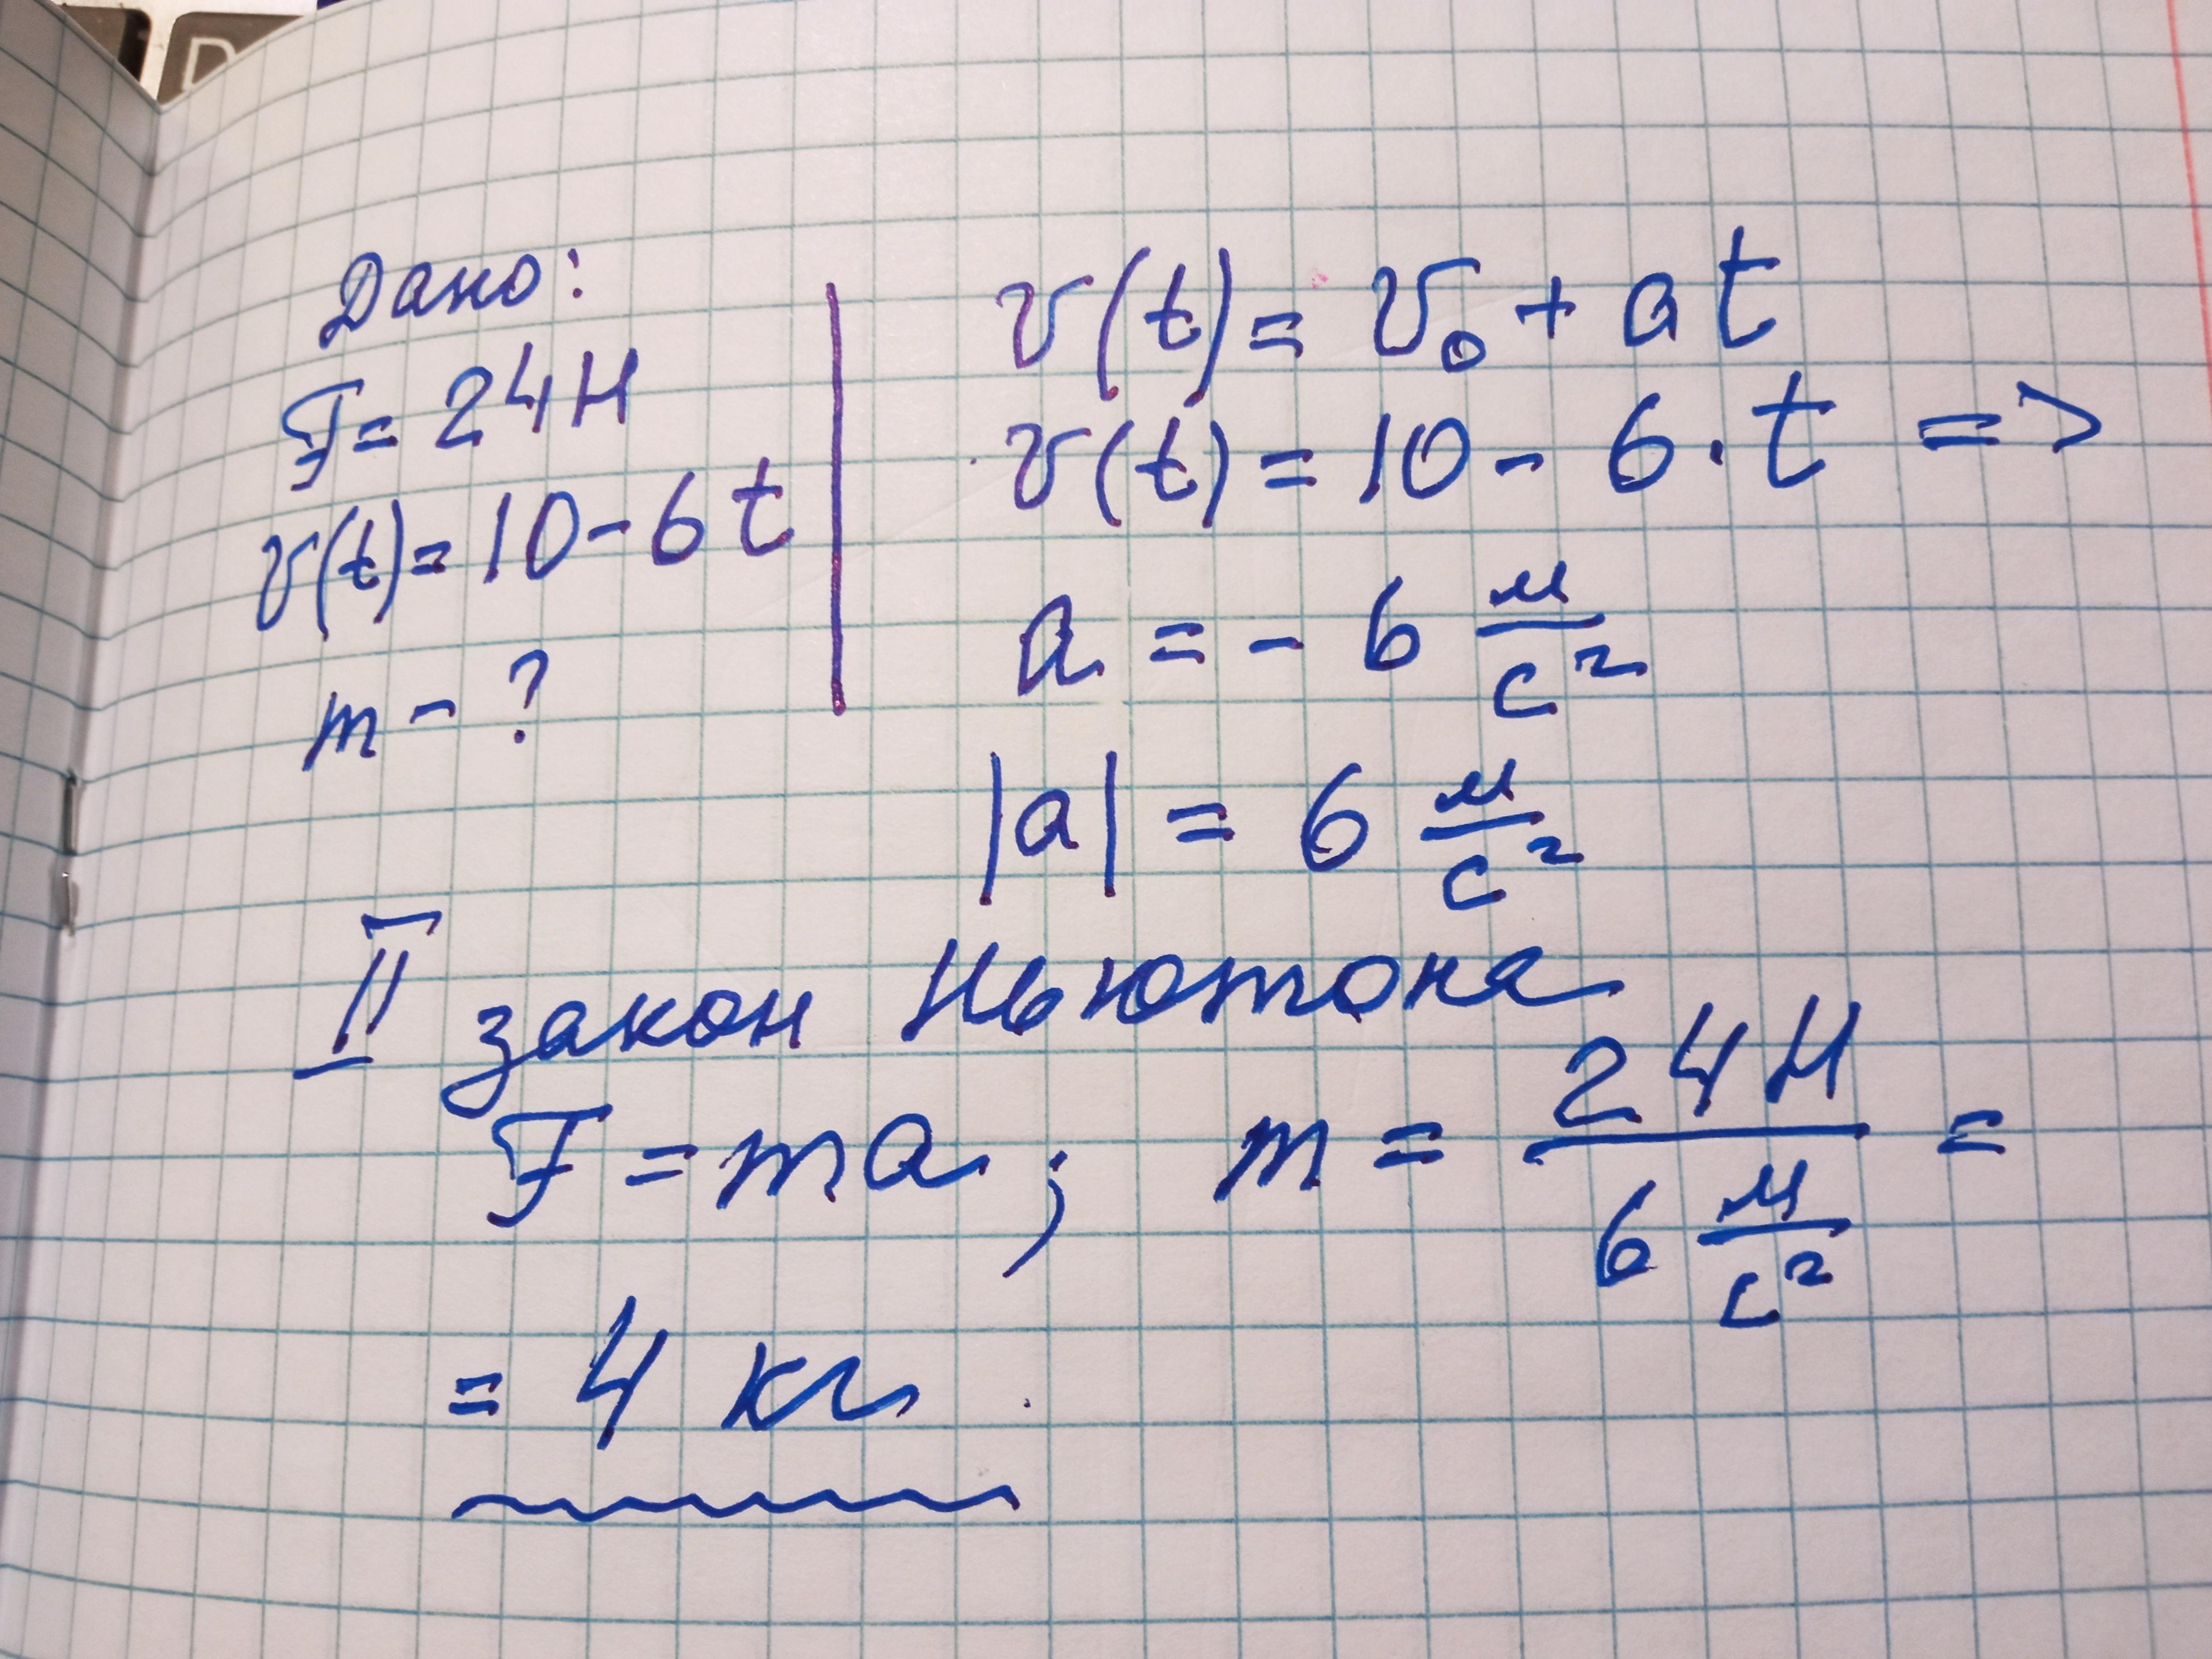 D
Дано:
F = 24 Н
v(t) = 10 - 6t
m - ?
v(t) = v₀ + at
v(t) = 10 - 6 · t =>
a = - 6 м/с²
|a| = 6 м/с²
II закон Ньютона
F = ma ; m = 24 Н / 6 м/с² =
= 4 кг